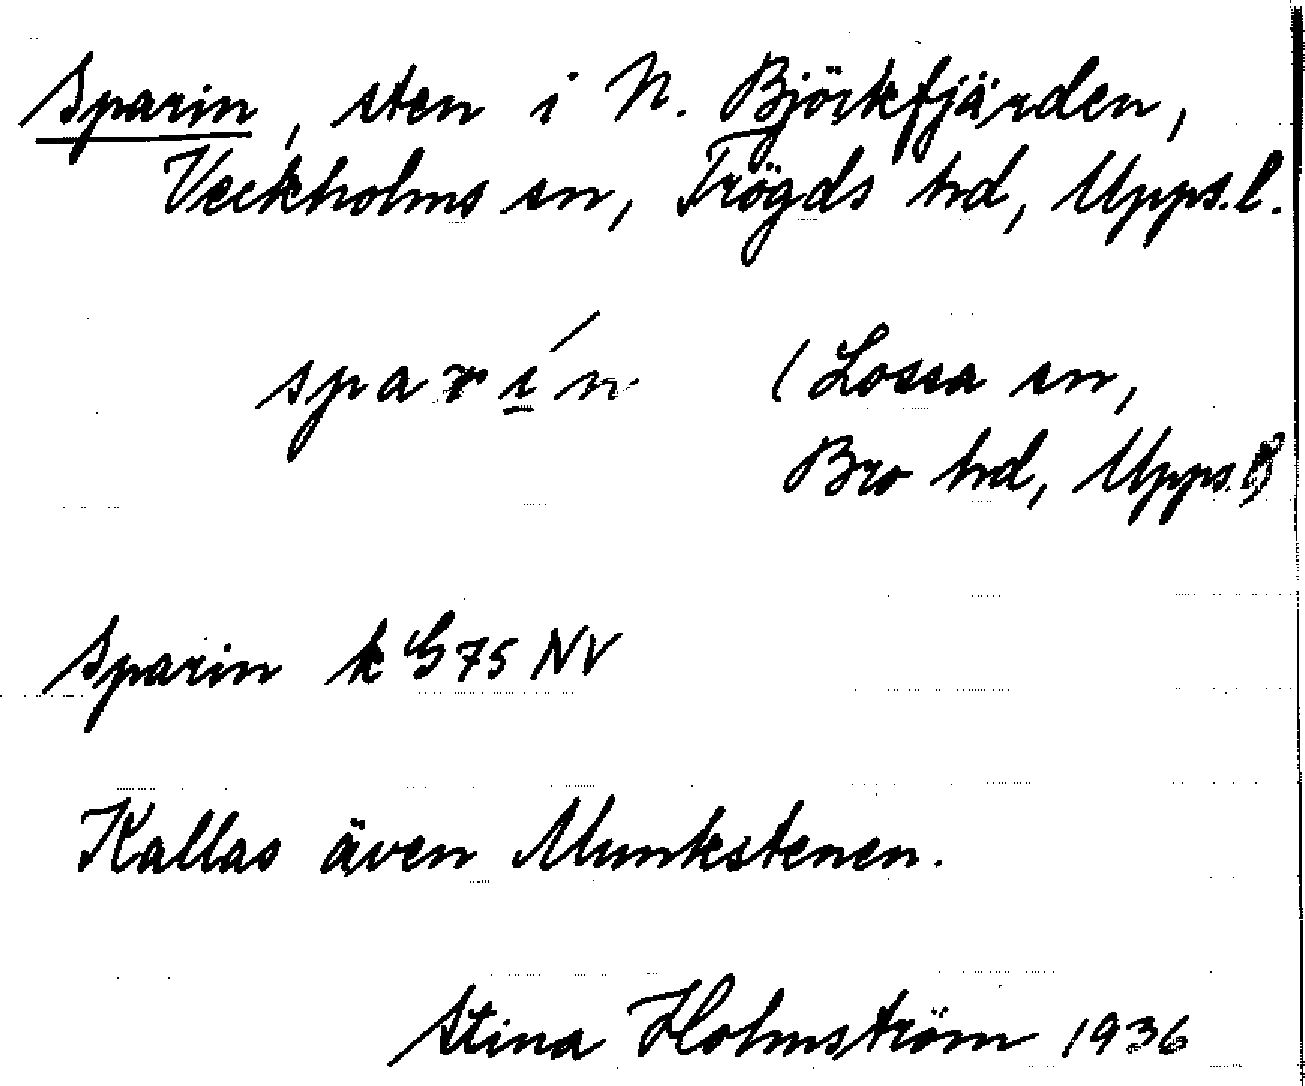 Sparin, sten i N. Björkfjärden,
Veckholms sn, Trögds hd, Upps. l.
sparı̱́n (Lossa sn,
Bro hd, Upps. l)
Sparin k G 75 NV
Kallas även Munkstenen.
Stina Holmström 1936